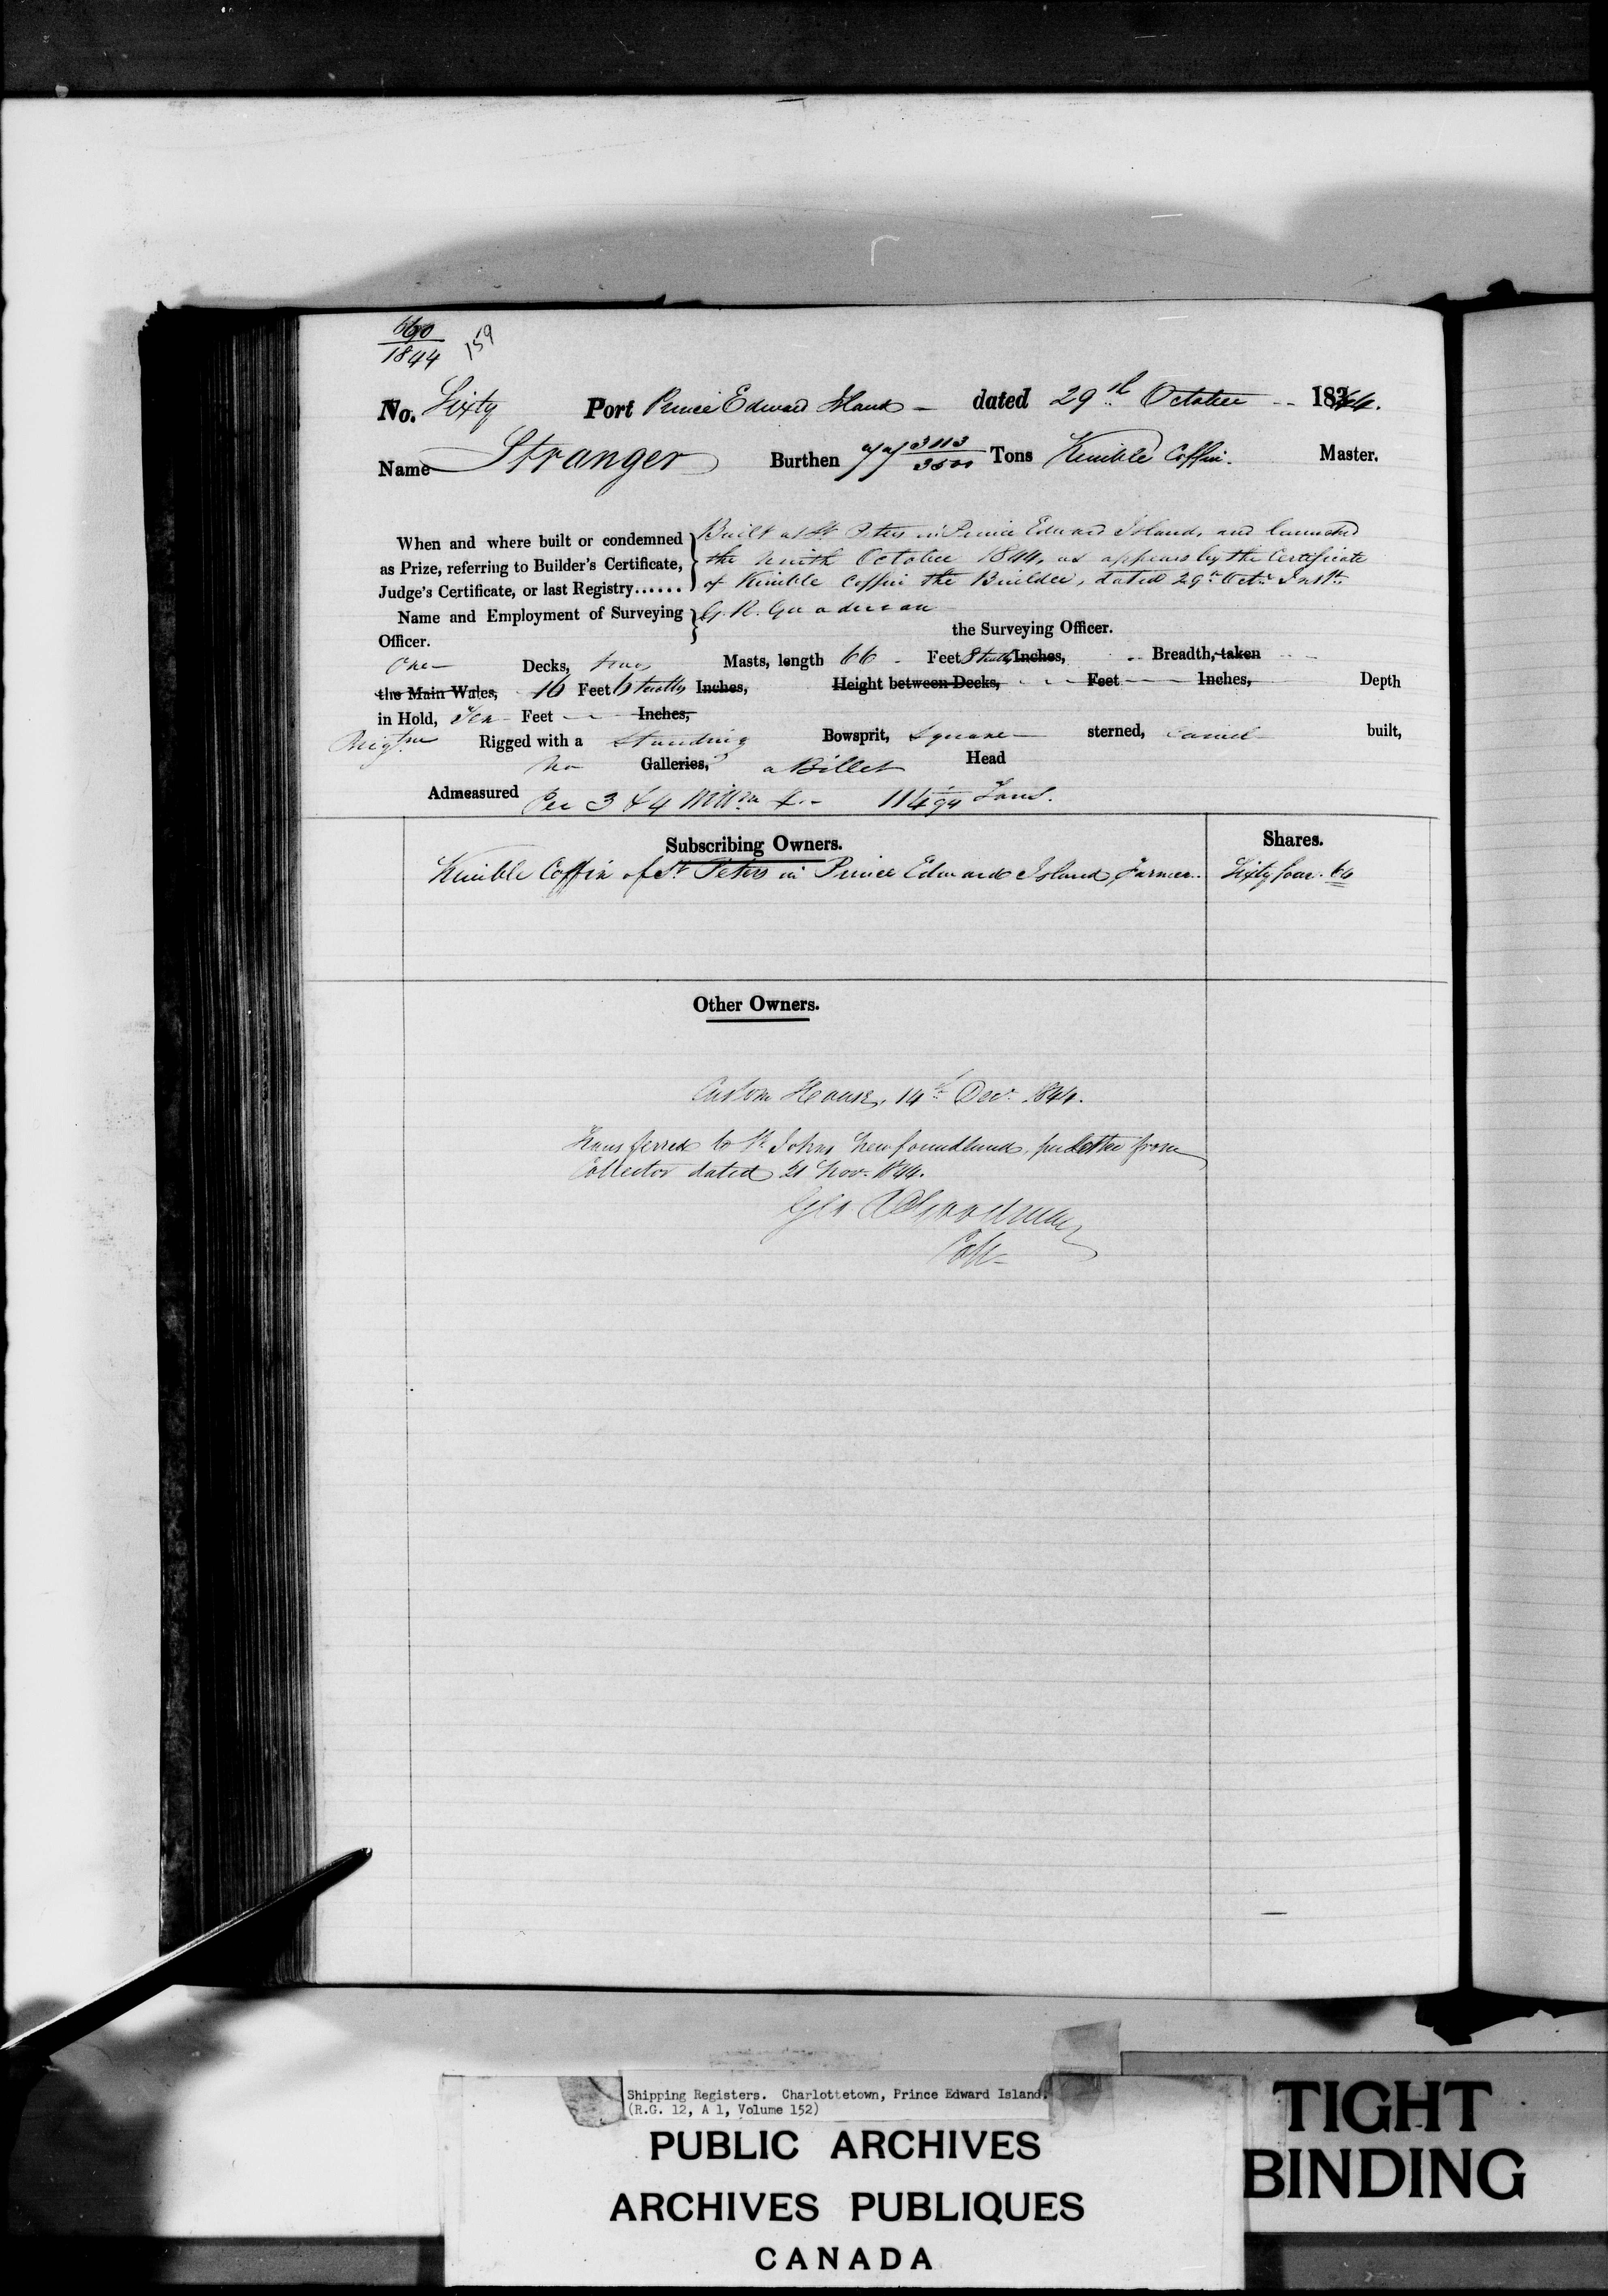 60
1844
159
No. Sixty Port Prince Edward Island dated 29th October 1844.
Name Stranger Burthen 77 3113/3500 Tons Kimble Coffin. Master.
When and where built or condemned as Prize, referring to Builder's Certificate, Judge's Certificate, or last Registry......
Built at St Peters in Prince Edward Island, and launched
the ninth October 1844, as appears by the Certificate
of Kimble Coffin the Builder, dated 29th Octr Instt.
Name and Employment of Surveying Officer. G. R. Goodman
the Surveying Officer.
One Decks, two Masts, length 66 Feet 8 tenths Inches, Breadth, taken
the Main Wales, 16 Feet 6 tenths Inches, Height between Decks, Feet Inches, Depth
in Hold, Ten Feet Inches,
Brigtne Rigged with a Standing Bowsprit, Square sterned, Carvel built,
No Galleries, a Billet Head
Admeasured Per 3 & 4 Willm 4. 114 /94 Tons.
Subscribing Owners. Shares.
Kimble Coffin of St Peters in Prince Edward Island, Farmer. Sixty four. 64
Other Owners.
Custom House, 14th Decr 1844.
Transferred to St Johns Newfoundland, per letter from
Collector dated 21 Nov. 1844.
Geo R Goodman
Collr
Shipping Registers. Charlottetown, Prince Edward Island.
(R.G. 12, A 1, Volume 152)
PUBLIC ARCHIVES
ARCHIVES PUBLIQUES
CANADA
TIGHT
BINDING